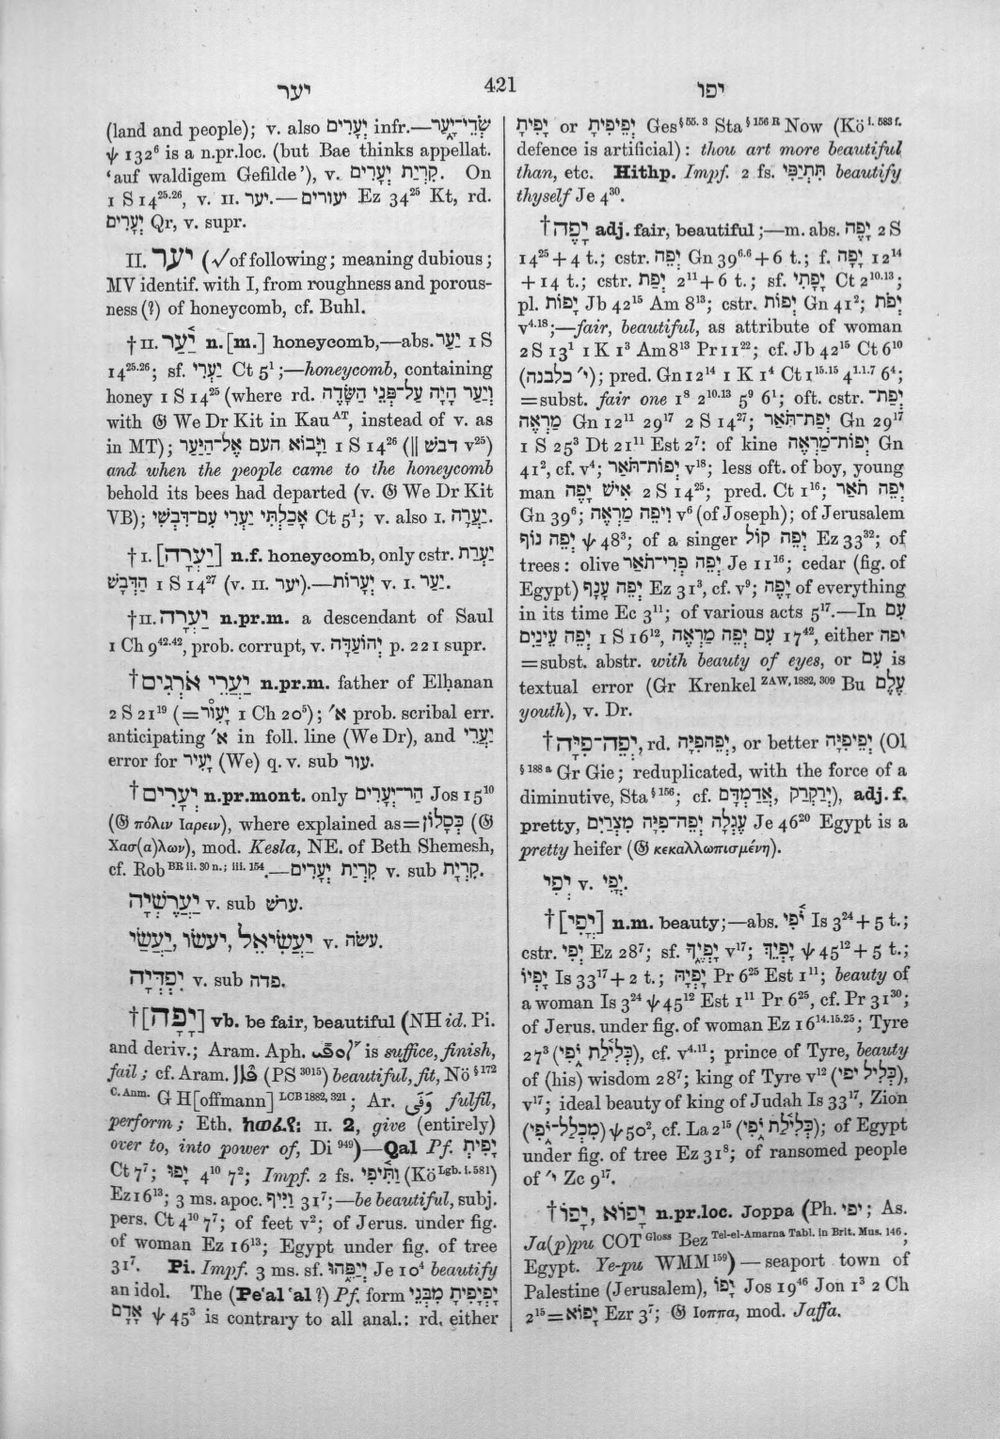 יער 421 יפו
(land and people); v. also יְעָרִים infr.—שְׂדֵי־יָ֑עַר
ψ 132⁶ is a n.pr.loc. (but Bae thinks appellat.
‘auf waldigem Gefilde’), v. קִרְיַת יְעָרִים. On
1 S 14²⁵·²⁶, v. II. יער.—יעורים Ez 34²⁵ Kt, rd.
יְעָרִים Qr, v. supr.
II. יער (√ of following; meaning dubious;
MV identif. with I, from roughness and porous-
ness (?) of honeycomb, cf. Buhl.
† II. יַ֫עַר n.[m.] honeycomb,—abs. יַעַר 1 S
14²⁵·²⁶; sf. יַעְרִי Ct 5¹;—honeycomb, containing
honey 1 S 14²⁵ (where rd. וְיַעַר הָיָה עַל־פְּנֵי הַשָּׂדֶה
with 𝔊 We Dr Kit in Kau ᴬᵀ, instead of v. as
in MT); וַיָּבוֹא העם אֶל־הַיַּעַר 1 S 14²⁶ (‖ דבשׁ v²⁵)
and when the people came to the honeycomb
behold its bees had departed (v. 𝔊 We Dr Kit
VB); אָכַלְתִּי יַעְרִי עִם־דִּבְשִׁי Ct 5¹; v. also I. יַעֲרָה.
† I. [יַעְרָה] n.f. honeycomb, only cstr. יַעְרַת
הַדְּבָשׁ 1 S 14²⁷ (v. II. יער).—יְעָרוֹת v. I. יַעַר.
† II. יַעְרָה n.pr.m. a descendant of Saul
1 Ch 9⁴²·⁴², prob. corrupt, v. יְהוֹעַדָּה p. 221 supr.
† יַעֲרֵי אֹרְגִים n.pr.m. father of Elḥanan
2 S 21¹⁹ (=יָעוּר 1 Ch 20⁵); א׳ prob. scribal err.
anticipating א׳ in foll. line (We Dr), and יַעֲרֵי
error for יָעִיר (We) q. v. sub עור.
† יְעָרִים n.pr.mont. only הַר־יְעָרִים Jos 15¹⁰
(𝔊 πόλιν Ιαρειν), where explained as=כְּסָלוֹן (𝔊
Χασ(α)λων), mod. Kesla, NE. of Beth Shemesh,
cf. Rob ᴮᴿ ⁱⁱ· ³⁰ ⁿ·; ⁱⁱⁱ· ¹⁵⁴.—קִרְיַת יְעָרִים v. sub קִרְיָת.
יַעֲרֶשְׁיָה v. sub ערשׁ.
יַעֲשִׂיאֵל, יעשׂו, יַעֲשַׂי v. עשׂה.
יִפְדְּיָה v. sub פדה.
† [יָפָה] vb. be fair, beautiful (NH id. Pi.
and deriv.; Aram. Aph. is suffice, finish,
fail; cf. Aram. (PS ³⁰¹⁵) beautiful, fit, Nö §¹⁷²
C. Anm. G H[offmann] LCB 1882, 321; Ar. وَفَى fulfil,
perform; Eth. II. 2, give (entirely)
over to, into power of, Di ⁹⁴⁹)—Qal Pf. יָפִית
Ct 7⁷; יָפוּ 4¹⁰ 7²; Impf. 2 fs. וַתִּיפִי (Kö Lgb. i. 581)
Ez 16¹³; 3 ms. apoc. וַיִּיף 31⁷;—be beautiful, subj.
pers. Ct 4¹⁰ 7⁷; of feet v²; of Jerus. under fig.
of woman Ez 16¹³; Egypt under fig. of tree
31⁷. Pi. Impf. 3 ms. sf. יְיַפֵּהוּ Je 10⁴ beautify
an idol. The (Pe‘al‘al?) Pf. form יָפְיָפִיתָ מִבְּנֵי
אָדָם ψ 45³ is contrary to all anal.: rd. either
יָפִיתָ or יְפֵיפִיתָ Ges §⁵⁵·³ Sta §¹⁵⁶ ᴿ Now (Kö i. 583 f.
defence is artificial): thou art more beautiful
than, etc. Hithp. Impf. 2 fs. תִּתְיַפִּי beautify
thyself Je 4³⁰.
† יָפֶה adj. fair, beautiful;—m. abs. יָפֶה 2 S
14²⁵ + 4 t.; cstr. יְפֵה Gn 39⁶·⁶ + 6 t.; f. יָפָה 12¹⁴
+ 14 t.; cstr. יְפַת 2¹¹ + 6 t.; sf. יָפָתִי Ct 2¹⁰·¹³;
pl. יָפוֹת Jb 42¹⁵ Am 8¹³; cstr. יְפוֹת Gn 41²; יְפֹת
v⁴·¹⁸;—fair, beautiful, as attribute of woman
2 S 13¹ 1 K 1³ Am 8¹³ Pr 11²²; cf. Jb 42¹⁵ Ct 6¹⁰
(י׳ כלבנה); pred. Gn 12¹⁴ 1 K 1⁴ Ct 1¹⁵·¹⁵ 4¹·¹·⁷ 6⁴;
=subst. fair one 1⁸ 2¹⁰·¹³ 5⁹ 6¹; oft. cstr. יְפַת־
מַרְאֶה Gn 12¹¹ 29¹⁷ 2 S 14²⁷; יְפַת־תֹּאַר Gn 29¹⁷
1 S 25³ Dt 21¹¹ Est 2⁷: of kine יְפוֹת־מַרְאֶה Gn
41², cf. v⁴; יְפוֹת־תֹּאַר v¹⁸; less oft. of boy, young
man אִישׁ יָפֶה 2 S 14²⁵; pred. Ct 1¹⁶; יְפֵה תֹאַר
Gn 39⁶; וִיפֵה מַרְאֶה v⁶ (of Joseph); of Jerusalem
יְפֵה נוֹף ψ 48³; of a singer יְפֵה קוֹל Ez 33³²; of
trees: olive יְפֵה פְרִי־תֹאַר Je 11¹⁶; cedar (fig. of
Egypt) יְפֵה עָנָף Ez 31³, cf. v⁹; יָפֶה of everything
in its time Ec 3¹¹; of various acts 5¹⁷.—In עִם
יְפֵה עֵינַיִם 1 S 16¹², עִם יְפֵה מַרְאֶה 17⁴², either יפה
=subst. abstr. with beauty of eyes, or עִם is
textual error (Gr Krenkel ZAW, 1882, 309 Bu עֶלֶם
youth), v. Dr.
† יְפֵה־פִיָּה, rd. יְפֵהפִיָּה, or better יְפֵיפִיָּה (Ol
§ ¹⁸⁸ ᵃ Gr Gie; reduplicated, with the force of a
diminutive, Sta §¹⁵⁶; cf. אֲדַמְדָּם, יְרַקְרַק), adj. f.
pretty, עֶגְלָה יְפֵה־פִיָּה מִצְרַיִם Je 46²⁰ Egypt is a
pretty heifer (𝔊 κεκαλλωπισμένη).
יְפִי v. יֳפִי.
† [יֳפִי] n.m. beauty;—abs. יֹ֫פִי Is 3²⁴ + 5 t.;
cstr. יְפִי Ez 28⁷; sf. יָפְיֶךָ v¹⁷; יָפְיֵךְ ψ 45¹² + 5 t.;
יָפְיוֹ Is 33¹⁷ + 2 t.; יָפְיָהּ Pr 6²⁵ Est 1¹¹; beauty of
a woman Is 3²⁴ ψ 45¹² Est 1¹¹ Pr 6²⁵, cf. Pr 31³⁰;
of Jerus. under fig. of woman Ez 16¹⁴·¹⁵·²⁵; Tyre
27³ (כְּלִילַת יֹפִי), cf. v⁴·¹¹; prince of Tyre, beauty
of (his) wisdom 28⁷; king of Tyre v¹² (כְּלִיל יֹפִי),
v¹⁷; ideal beauty of king of Judah Is 33¹⁷, Zion
(מִכְלַל־יֹפִי) ψ 50², cf. La 2¹⁵ (כְּלִילַת יֹפִי); of Egypt
under fig. of tree Ez 31⁸; of ransomed people
of י׳ Zc 9¹⁷.
† יָפוֹ, יָפוֹא n.pr.loc. Joppa (Ph. יפי; As.
Ja(p)pu COT Gloss Bez Tel-el-Amarna Tabl. in Brit. Mus. 146;
Egypt. Ye-pu WMM ¹⁵⁹) — seaport town of
Palestine (Jerusalem), יָפוֹ Jos 19⁴⁶ Jon 1³ 2 Ch
2¹⁵=יָפוֹא Ezr 3⁷; 𝔊 Ιοππα, mod. Jaffa.